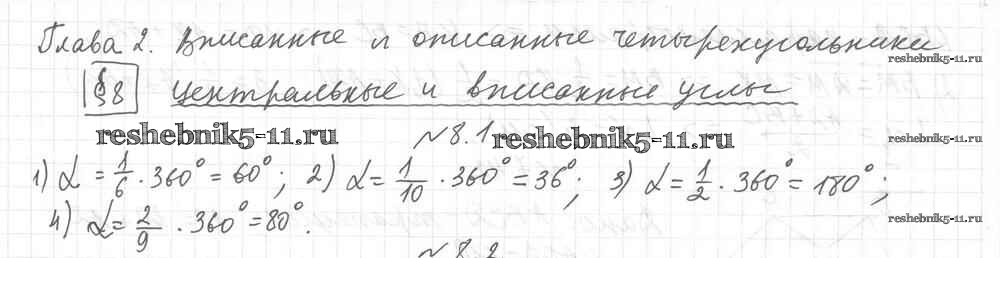 Глава 2. Вписанные и описанные четырехугольники
reshebnik5-11.ru
§8 Центральные и вписанные углы
reshebnik5-11.ru №8.1 reshebnik5-11.ru reshebnik5-11.ru
1) α = 1/6 · 360° = 60°; 2) α = 1/10 · 360° = 36°; 3) α = 1/2 · 360° = 180°;
4) α = 2/9 · 360° = 80°. reshebnik5-11.ru
№8.2